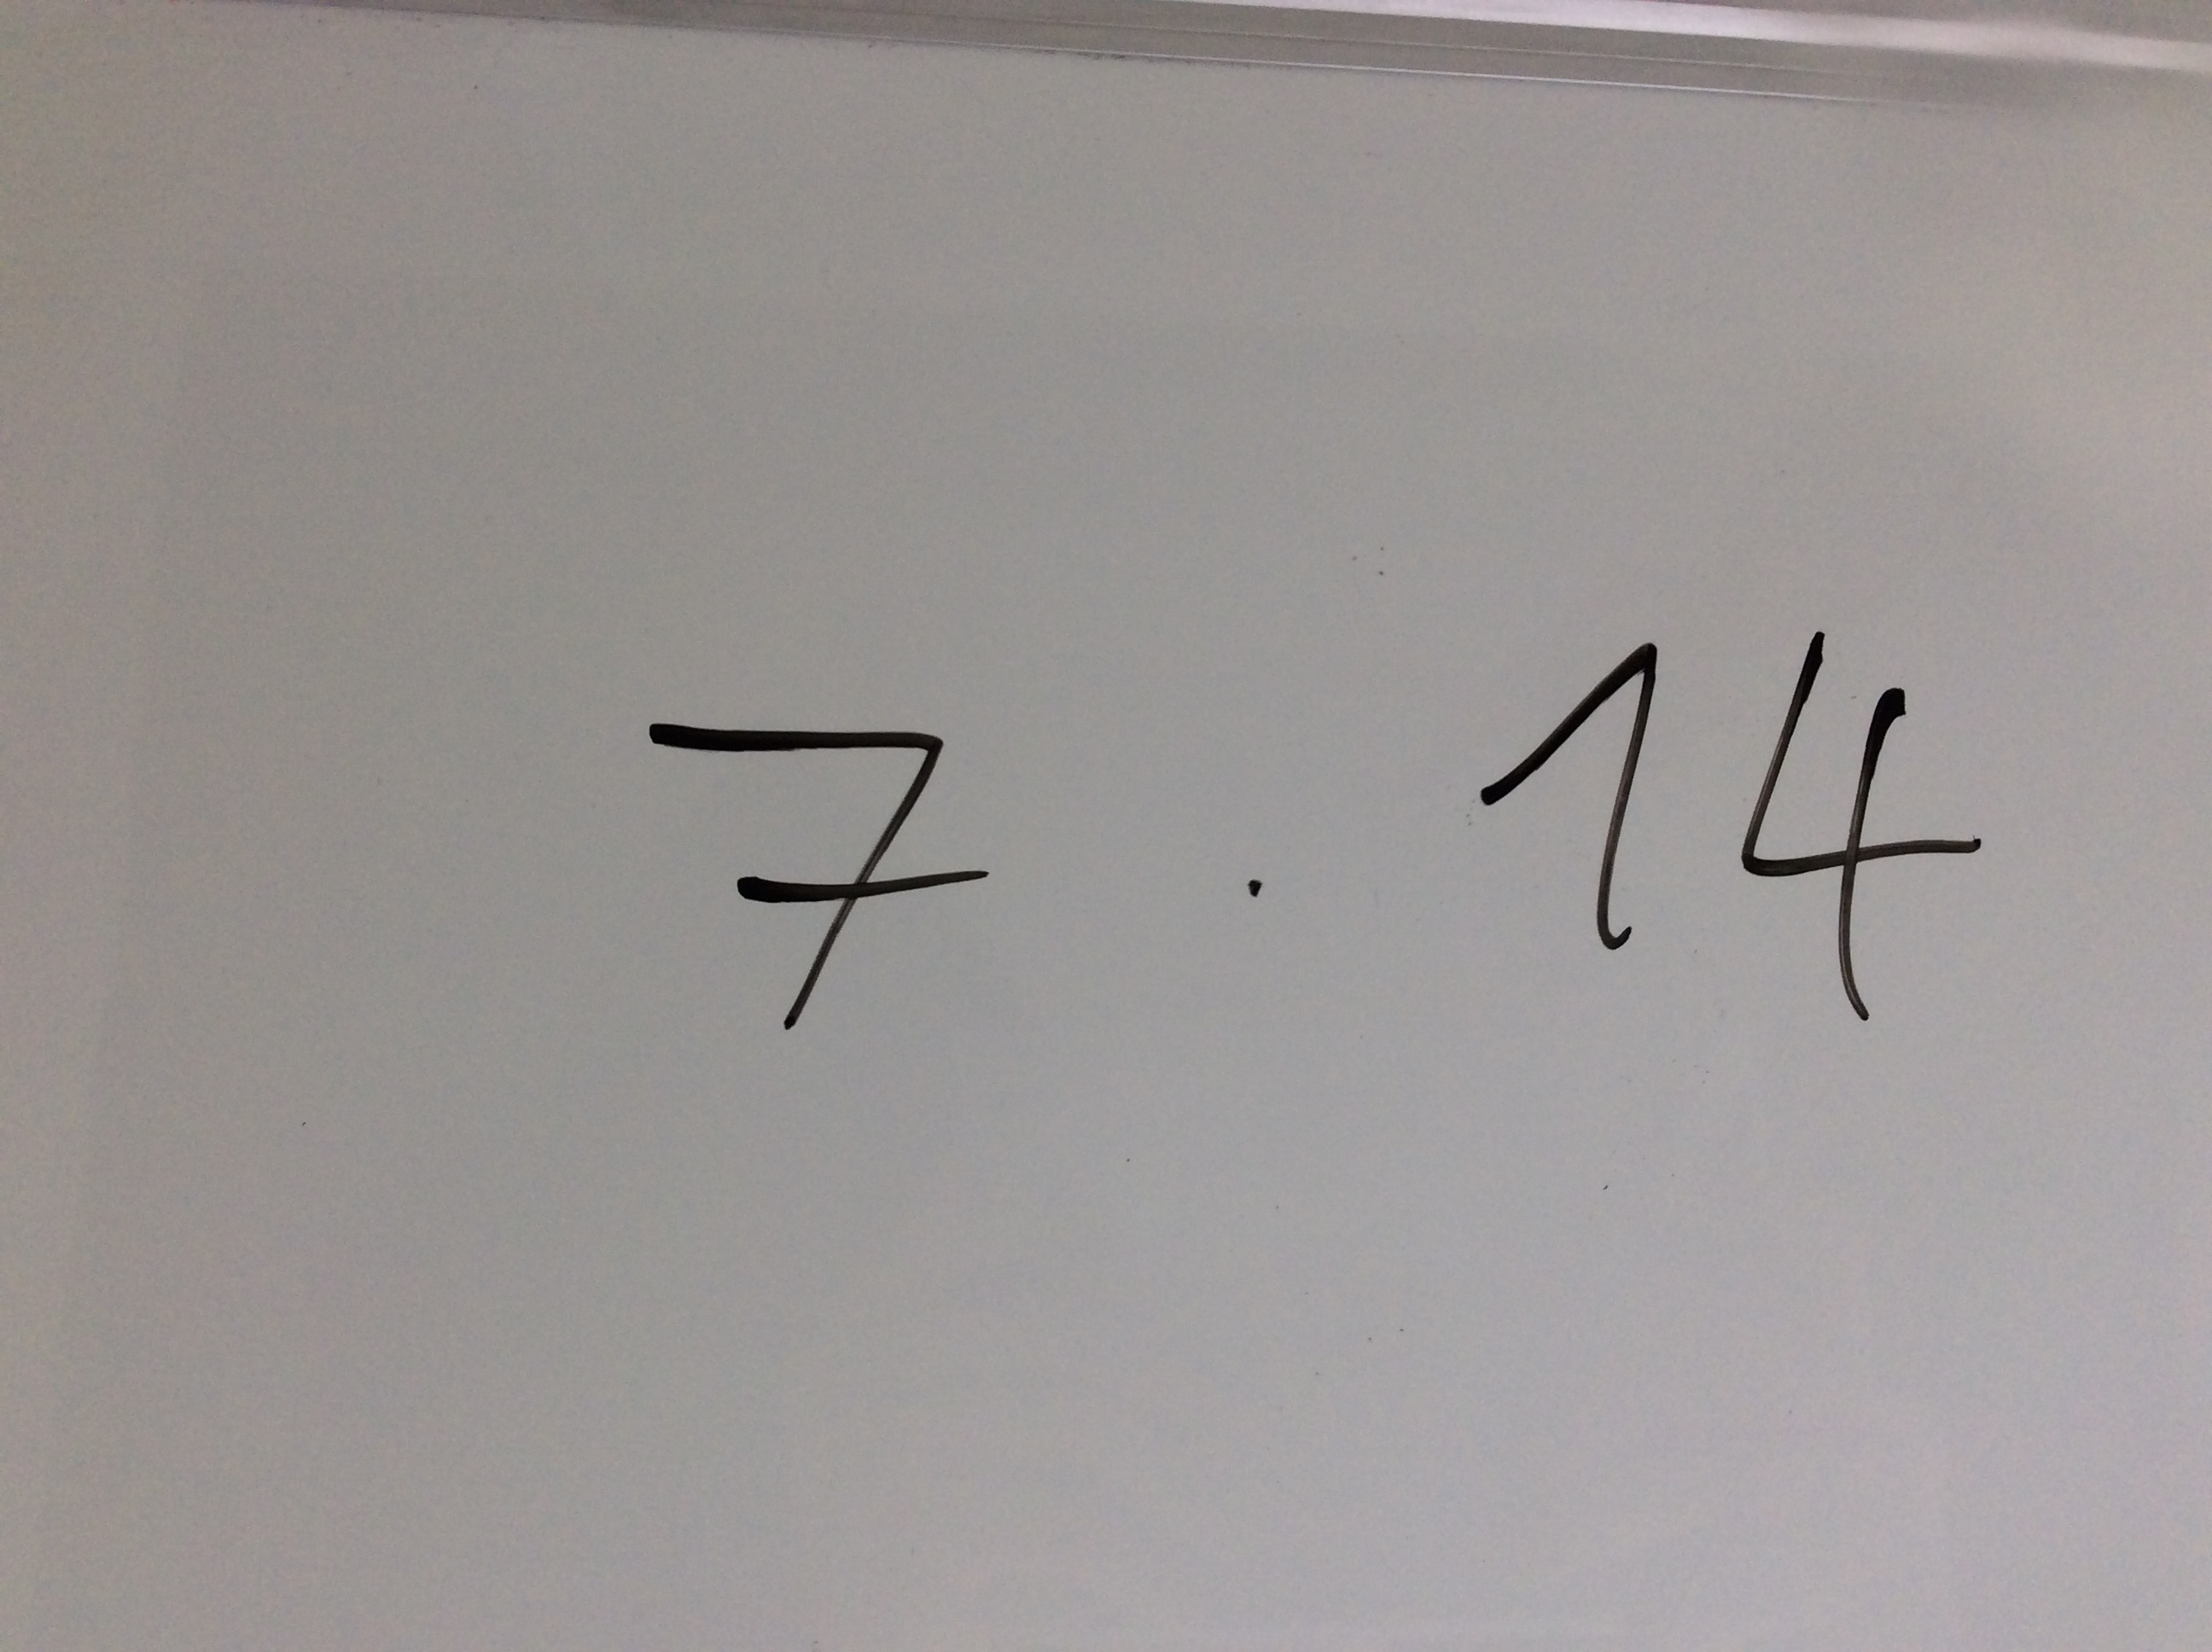 7 · 14